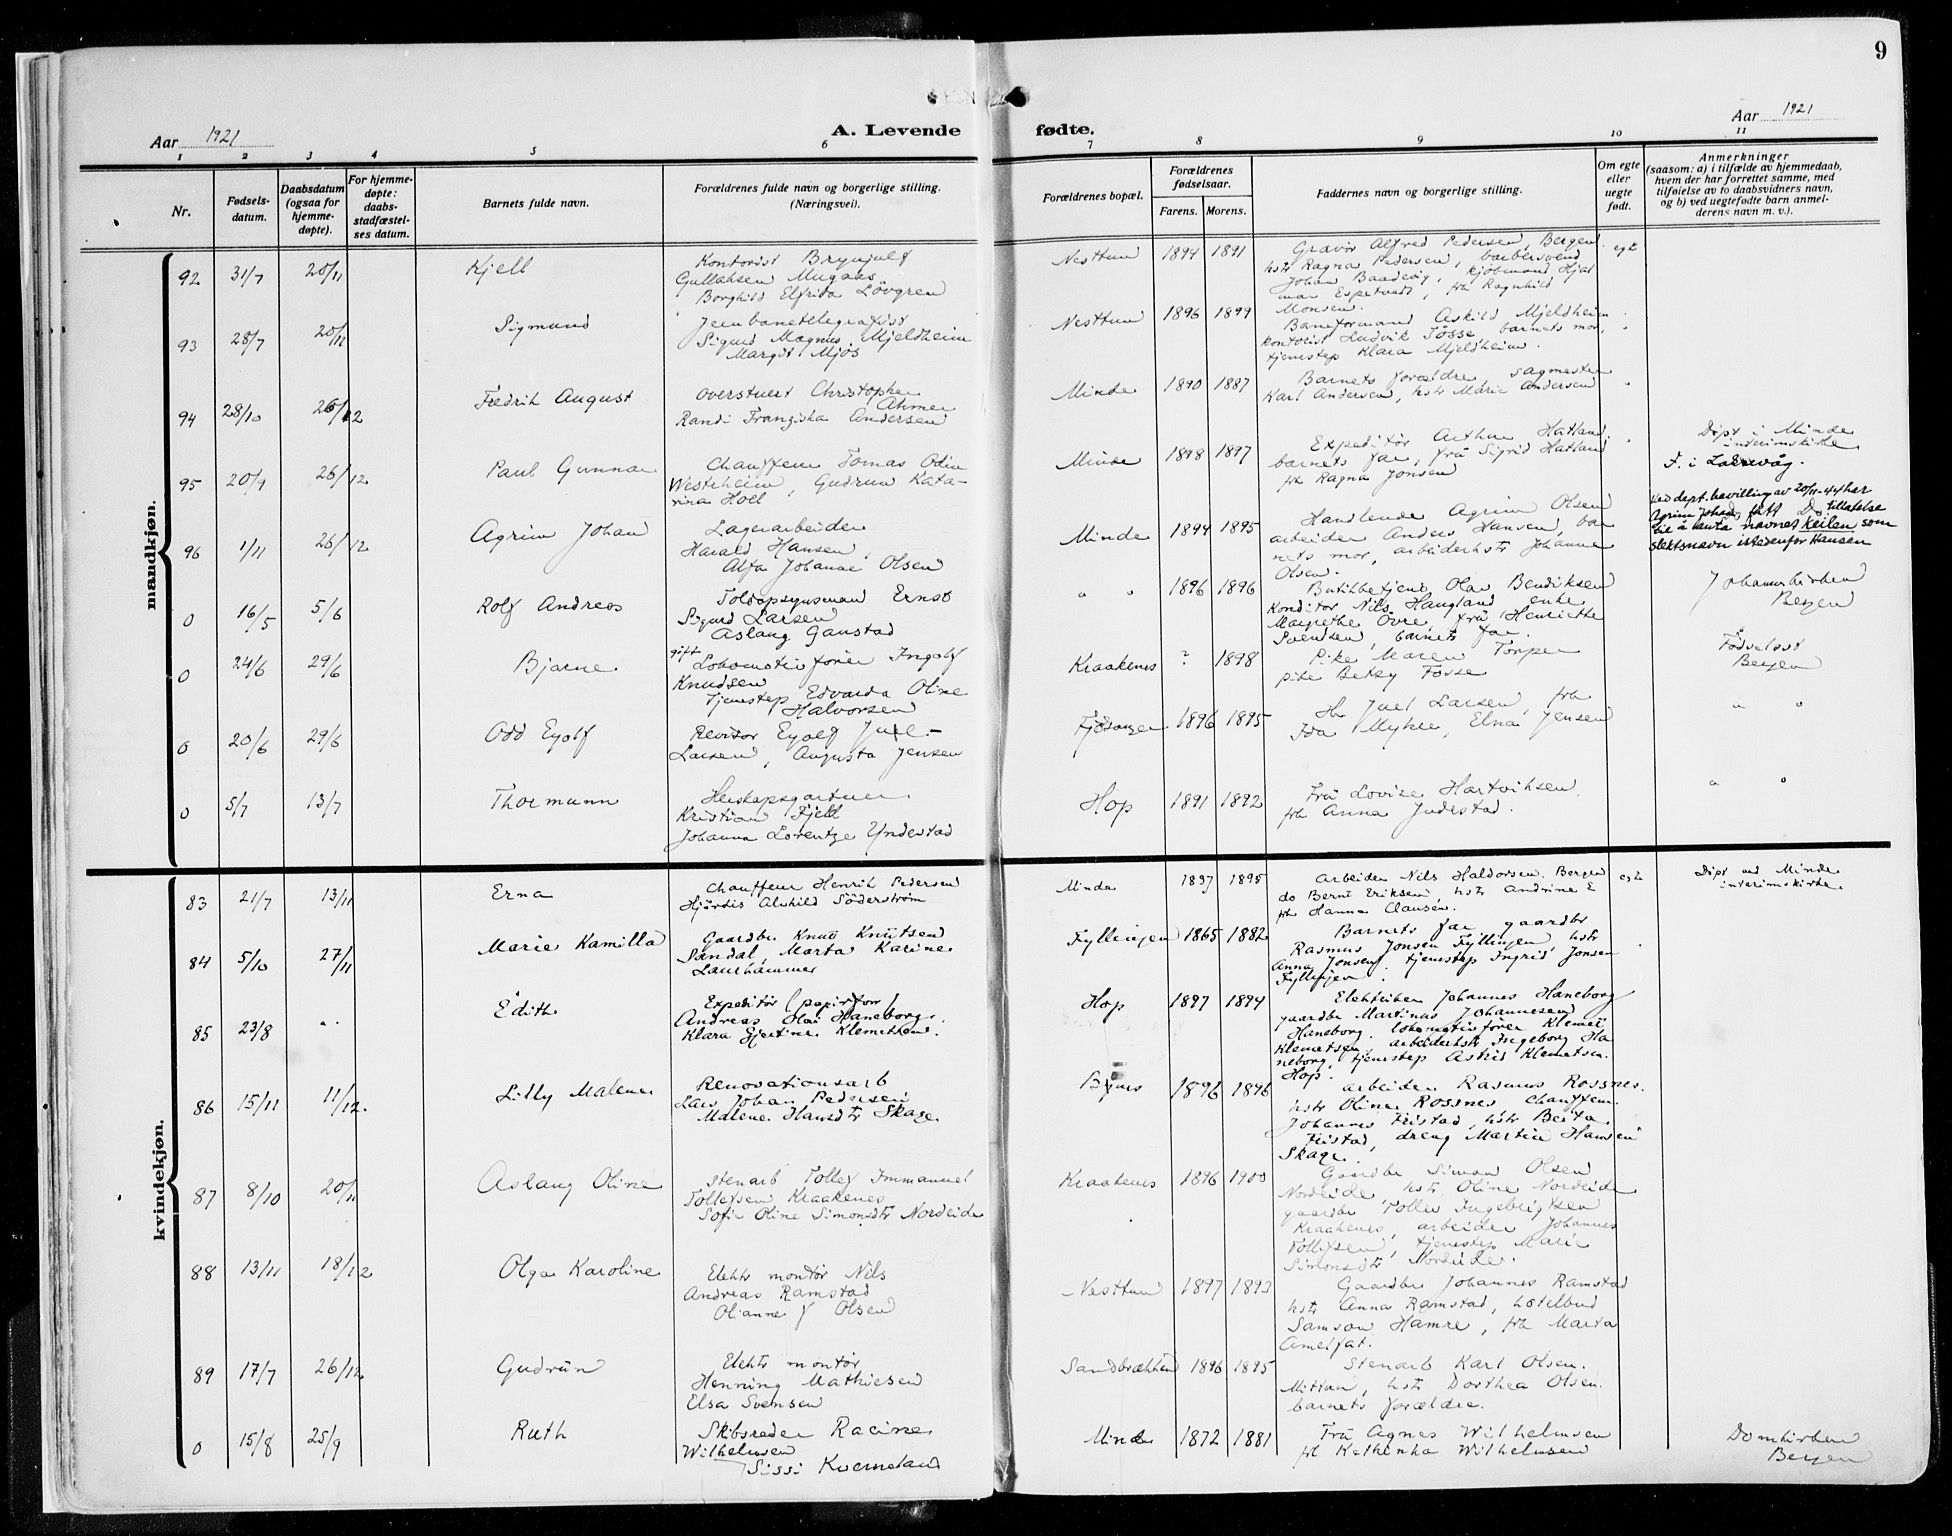 9
Aar 1921
A. Levende fødte.
Aar 1921
1 2 3 4 5 6 7 8 9 10 11
Nr.
Fødsels-
datum.
Daabsdatum
(ogsaa for
hjemme-
døpte).
For hjemme-
døpte:
daabs-
stadfæstel-
ses datum.
Barnets fulde navn.
Forældrenes fulde navn og borgerlige stilling.
(Næringsvei).
Forældrenes bopæl.
Forældrenes
fødselsaar.
Farens. Morens.
Faddernes navn og borgerlige stilling.
Om egte
eller
uegte
født.
Anmerkninger
(saasom: a) i tilfælde av hjemmedaab,
hvem der har forrettet samme, med
tilføielse av to daabsvidners navn,
og b) ved uegtefødte barn anmel-
derens navn m. v.).
mandkjøn.
92 31/7 20/11 Kjell
Kontorist Brynjulf
Gullaksen Mugaas
Borghild Elfrida Lövgren
Nesttun 1894 1891
Gravør Alfred Pedersen, Bergen
hstr Ragna Pedersen, barbersvend
Johan Baadsvig, kjøbmand Hjal
mar Espetvedt, frk Ragnhild
Monsen.
egte
93 28/7 20/11 Sigmund
Jernbanetelegrafist
Sigurd Magnus Mjeldheim
Margit Mjøs
Nesttun 1896 1899
Baneformand Askild Mjeldheim
kontorist Ludvik Tösse barnets mor,
tjenestep Klara Mjeldheim.
94 28/10 26/12 Fredrik August
Overstuert Christopher
Ahmer
Randi Franziska Andersen
Minde 1890 1887
Barnets forældre sagmester
Karl Andersen, hstr Marie Andersen
95 20/9 26/12 Paul Gunnar
Chauffeur Tomas Odin
Westerheim, Gudrun Kata-
rina Holl
Minde 1898 1897
Expeditør Arthur Hatland,
barnets far, fru Sigrid Hatland
frk Ragna Jonsen
Døpt i Minde
interimskirke
F. i Laksevåg.
96 1/11 26/12 Agrim Johan
Lagerarbeider
Harald Hansen,
Alfa Johanne Olsen
Minde 1894 1895
Handlende Agrim Olsen
arbeider Anders Hansen, bar
nets mor, arbeiderhstr Johanne
Olsen.
Ved dept. bevilling av 20/11-44 har
Agrim Johan fått tillatelse
til å anta navnet Keilen som
slektsnavn istedenfor Hansen
0 16/5 5/6 Rolf Andreas
Toldopsynsmand Ernst
Sigurd Larsen
Aslaug Gaustad
" " 1896 1896
Butikbetjent Olav Bendiksen
Konditor Nils Haugland enke
Margrethe Övre, fru Henriette
Svendsen, barnets far.
Johanneskirken
Bergen
0 24/6 29/6 Bjarne
gift
Lokomotivfører Ingolf
Knudsen
Tjenestep Edvarda Oline
Halvorsen
Kraakenes ? 1898
Pike Maren Torper
pike Betsy Fosse
Fødselsst
Bergen
0 20/6 29/6 Odd Eyolf
Revisor Eyolf Juel-
Larsen, Augusta Jensen
Fjösanger 1896 1895
Hr Juel Larsen, frk
Ida Myhre, Elna Jensen
" "
0 5/7 13/7 Thormann
Herskapsgartner
Kristian Fjell
Johanna Lorentze Yndestad
Hop 1891 1892
Fru Lovise Hartvihsen.
frk Anna Indestad.
" "
kvindekjøn.
83 21/7 13/11 Erna
Chauffeur Henrik Pedersen
Hjørdis Alvhild Söderstrøm
Minde 1897 1895
Arbeider Nils Haldorsen. Bergen
do Bernt Eriksen, hstr Andrine E
frk Hanna Clausen.
egte
Døpt ved Minde
interimskirke.
84 5/10 27/11 Marie Kamilla
Gaardbr Knut Knutsen
Sandal, Marta Karine
Laurhammer
Fyllingen 1865 1882
Barnets far, gaardbr
Rasmus Jonsen Fyllingen, hstr
Anna Jonsen, tjenestep Ingrid Jonsen
Fyllingen.
85 23/8 " Edith
Expeditør (papirforr)
Andreas Olai Haneborg.
Klara Gjertine Klemetsen.
Hop 1897 1894
Elektriker Johannes Haneborg
gaardbr Martinus Johannesen
Haneborg. lokomotivfører Klemet
Klemetsen, arbeiderhstr Ingeborg Ha
neborg, tjenestep Astrid Klemetsen.
Hop.
86 15/11 11/12. Lilly Malene
Renovationsarb
Lars Johan Pedersen
Malene Hansdtr Skage
1896 1896
Arbeider Rasmus Rossnes.
hstr Oline Rossnes chauffeur.
Johannes Tristad, hstr Berta
Tristad, dreng Martin Hansen
Skage.
87 8/10 20/11 Aslaug Oline
Stenarb Tollef Immanuel
Tollefsen Kraakenes
Sofie Oline Simonsdtr Nordeide
Kraakenes 1896 1900
Gaardbr Simon Olsen
Nordeide, hstr Oline Nordeide
gaardbr Tollef Ingebrigtsen
Kraakenes, arbeider Johannes
Tollefsen, tjenestep Marie
Simonsdtr Nordeide.
88 13/11 18/12 Olga Karoline
Elektr montør Nils
Andreas Ramstad
Olianne J Olsen
Nesttun 1897 1893
Gaardbr Johannes Ramstad
hstr Anna Ramstad, hotelbud
Samson Hamre, frk Marta
Ameltat.
89 17/7 26/12 Gudrun
Elektr montør
Henning Mathiesen
Elsa Svensen
Sandbrækken 1896 1895
Stenarb Karl Olsen.
Mittun, hstr Dorthea Olsen.
barnets forældre.
0 15/8 25/9 Ruth
Skibsreder Racine
Wilhelmsen
Sissi Kverneland
Minde 1872 1881
Fru Agnes Wilhelmsen
frk Kathinka Wilhelmsen
Domkirken
Bergen